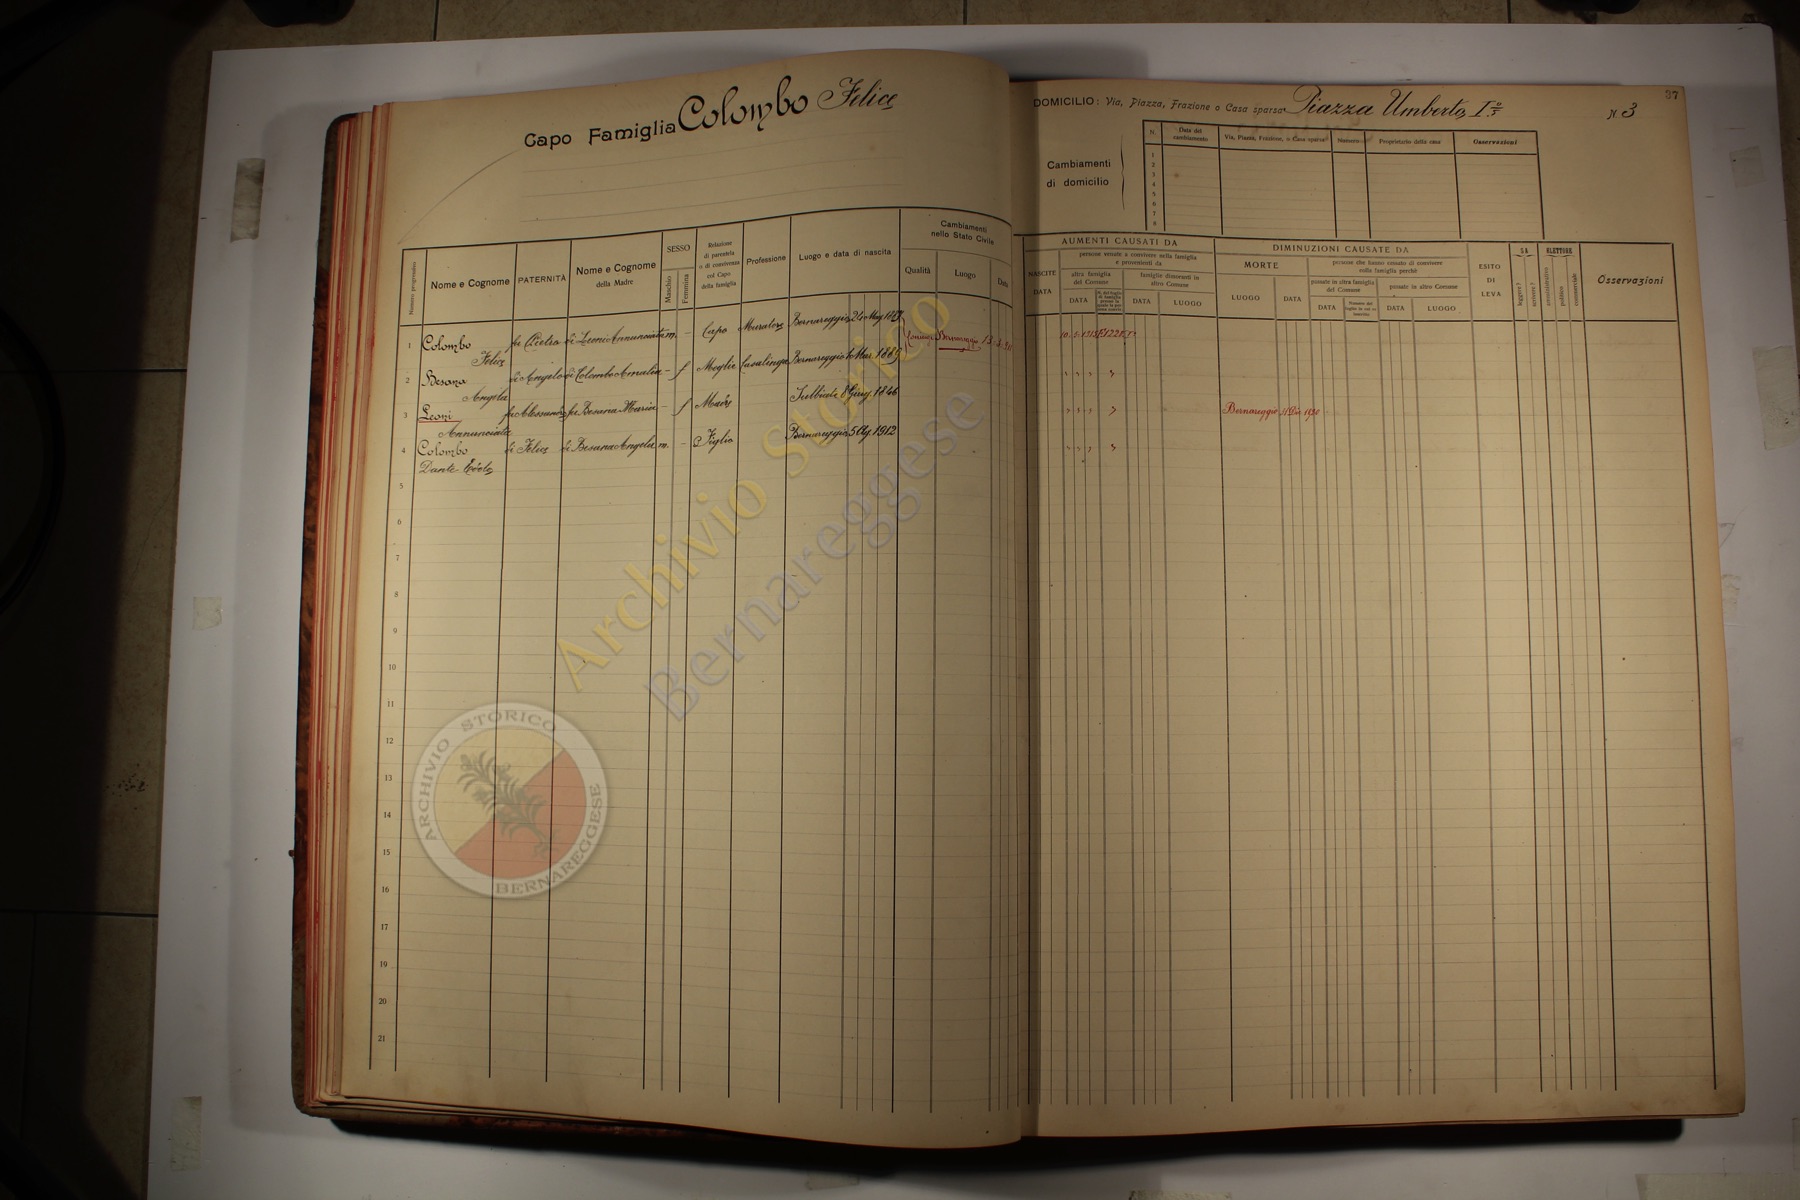 37
Capo Famiglia Colombo Felice
DOMICILIO: Via, Piazza, Frazione o Casa sparsa Piazza Umberto I° N. 3
Cambiamenti
di domicilio
N. Data del cambiamento Via, Piazza, Frazione, o Casa sparsa Numero Proprietario della casa Osservazioni
1
2
3
4
5
6
7
8
Numero progressivo
Nome e Cognome
PATERNITÀ
Nome e Cognome
della Madre
SESSO
Maschio
Femmina
Relazione
di parentela
o di convivenza
col Capo
della famiglia
Professione
Luogo e data di nascita
Cambiamenti
nello Stato Civile
Qualità Luogo Data
NASCITE
DATA
AUMENTI CAUSATI DA
persone venute a convivere nella famiglia
e provenienti da
altra famiglia
del Comune
DATA
famiglie dimoranti in
altro Comune
DATA LUOGO
DIMINUZIONI CAUSATE DA
MORTE
LUOGO DATA
persone che hanno cessato di convivere
colla famiglia perchè
passate in altra famiglia
del Comune
DATA
passate in altro Comune
DATA LUOGO
ESITO
DI
LEVA
SA
leggere?
scrivere?
ELETTORE
amministrativo
politico
commerciale
Osservazioni
1 Colombo fu Pietro di Leoni Annunciata m. - Capo Muratore Bernareggio 24 Mag.
Felice
Bernareggio
2 Besana di Angelo di Colombo Amalia - f Moglie Casalinga Bernareggio 1 Mar. 1889
Angela
3 Leoni fu Alessandro fu Besana Maria - f Madre 8 Giug. 1846 Bernareggio 11 Dic. 1930
Annunciata
4 Colombo di Felice di Besana Angela m. - Figlio Bernareggio 5 Ag. 1912
Dante
5
6
7
8
9
10
11
12
13
14
15
16
17
19
20
21
Archivio Storico
Bernareggese
ARCHIVIO STORICO
BERNAREGGESE